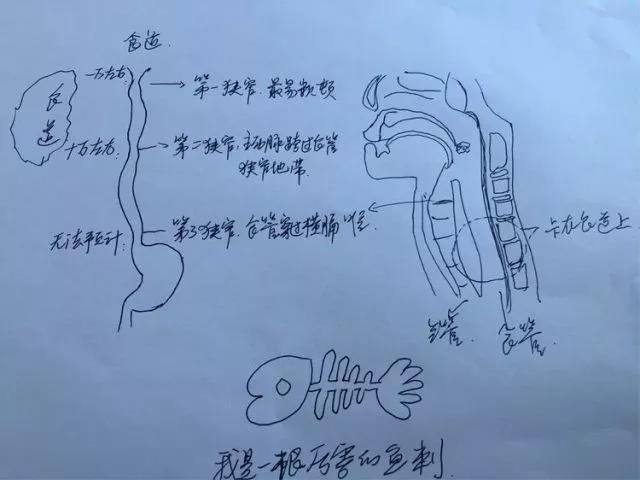 食道
食道
一万左右
第一狭窄.最易数顿
十万左右
第二狭窄:主动脉跨过食管
狭窄地带.
无法预计
第3狭窄.食管穿过横膈
卡在食道上
气管
食管
我是一根厉害的鱼刺.